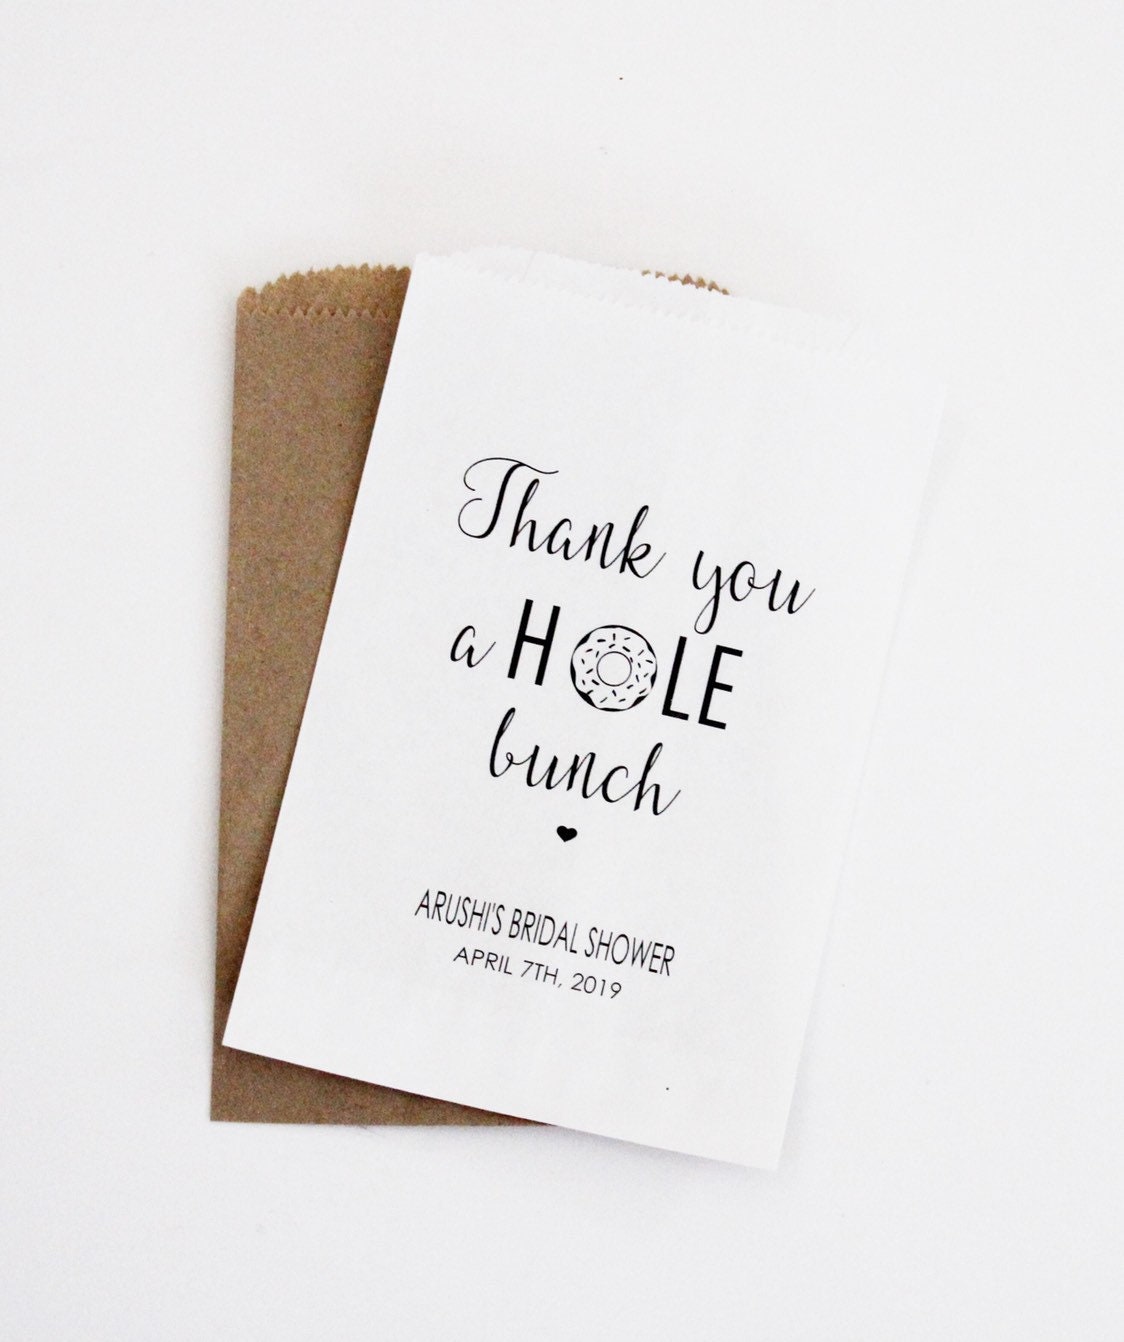 Thank you
a HOLE
bunch
ARUSHI'S BRIDAL SHOWER
APRIL 7TH, 2019